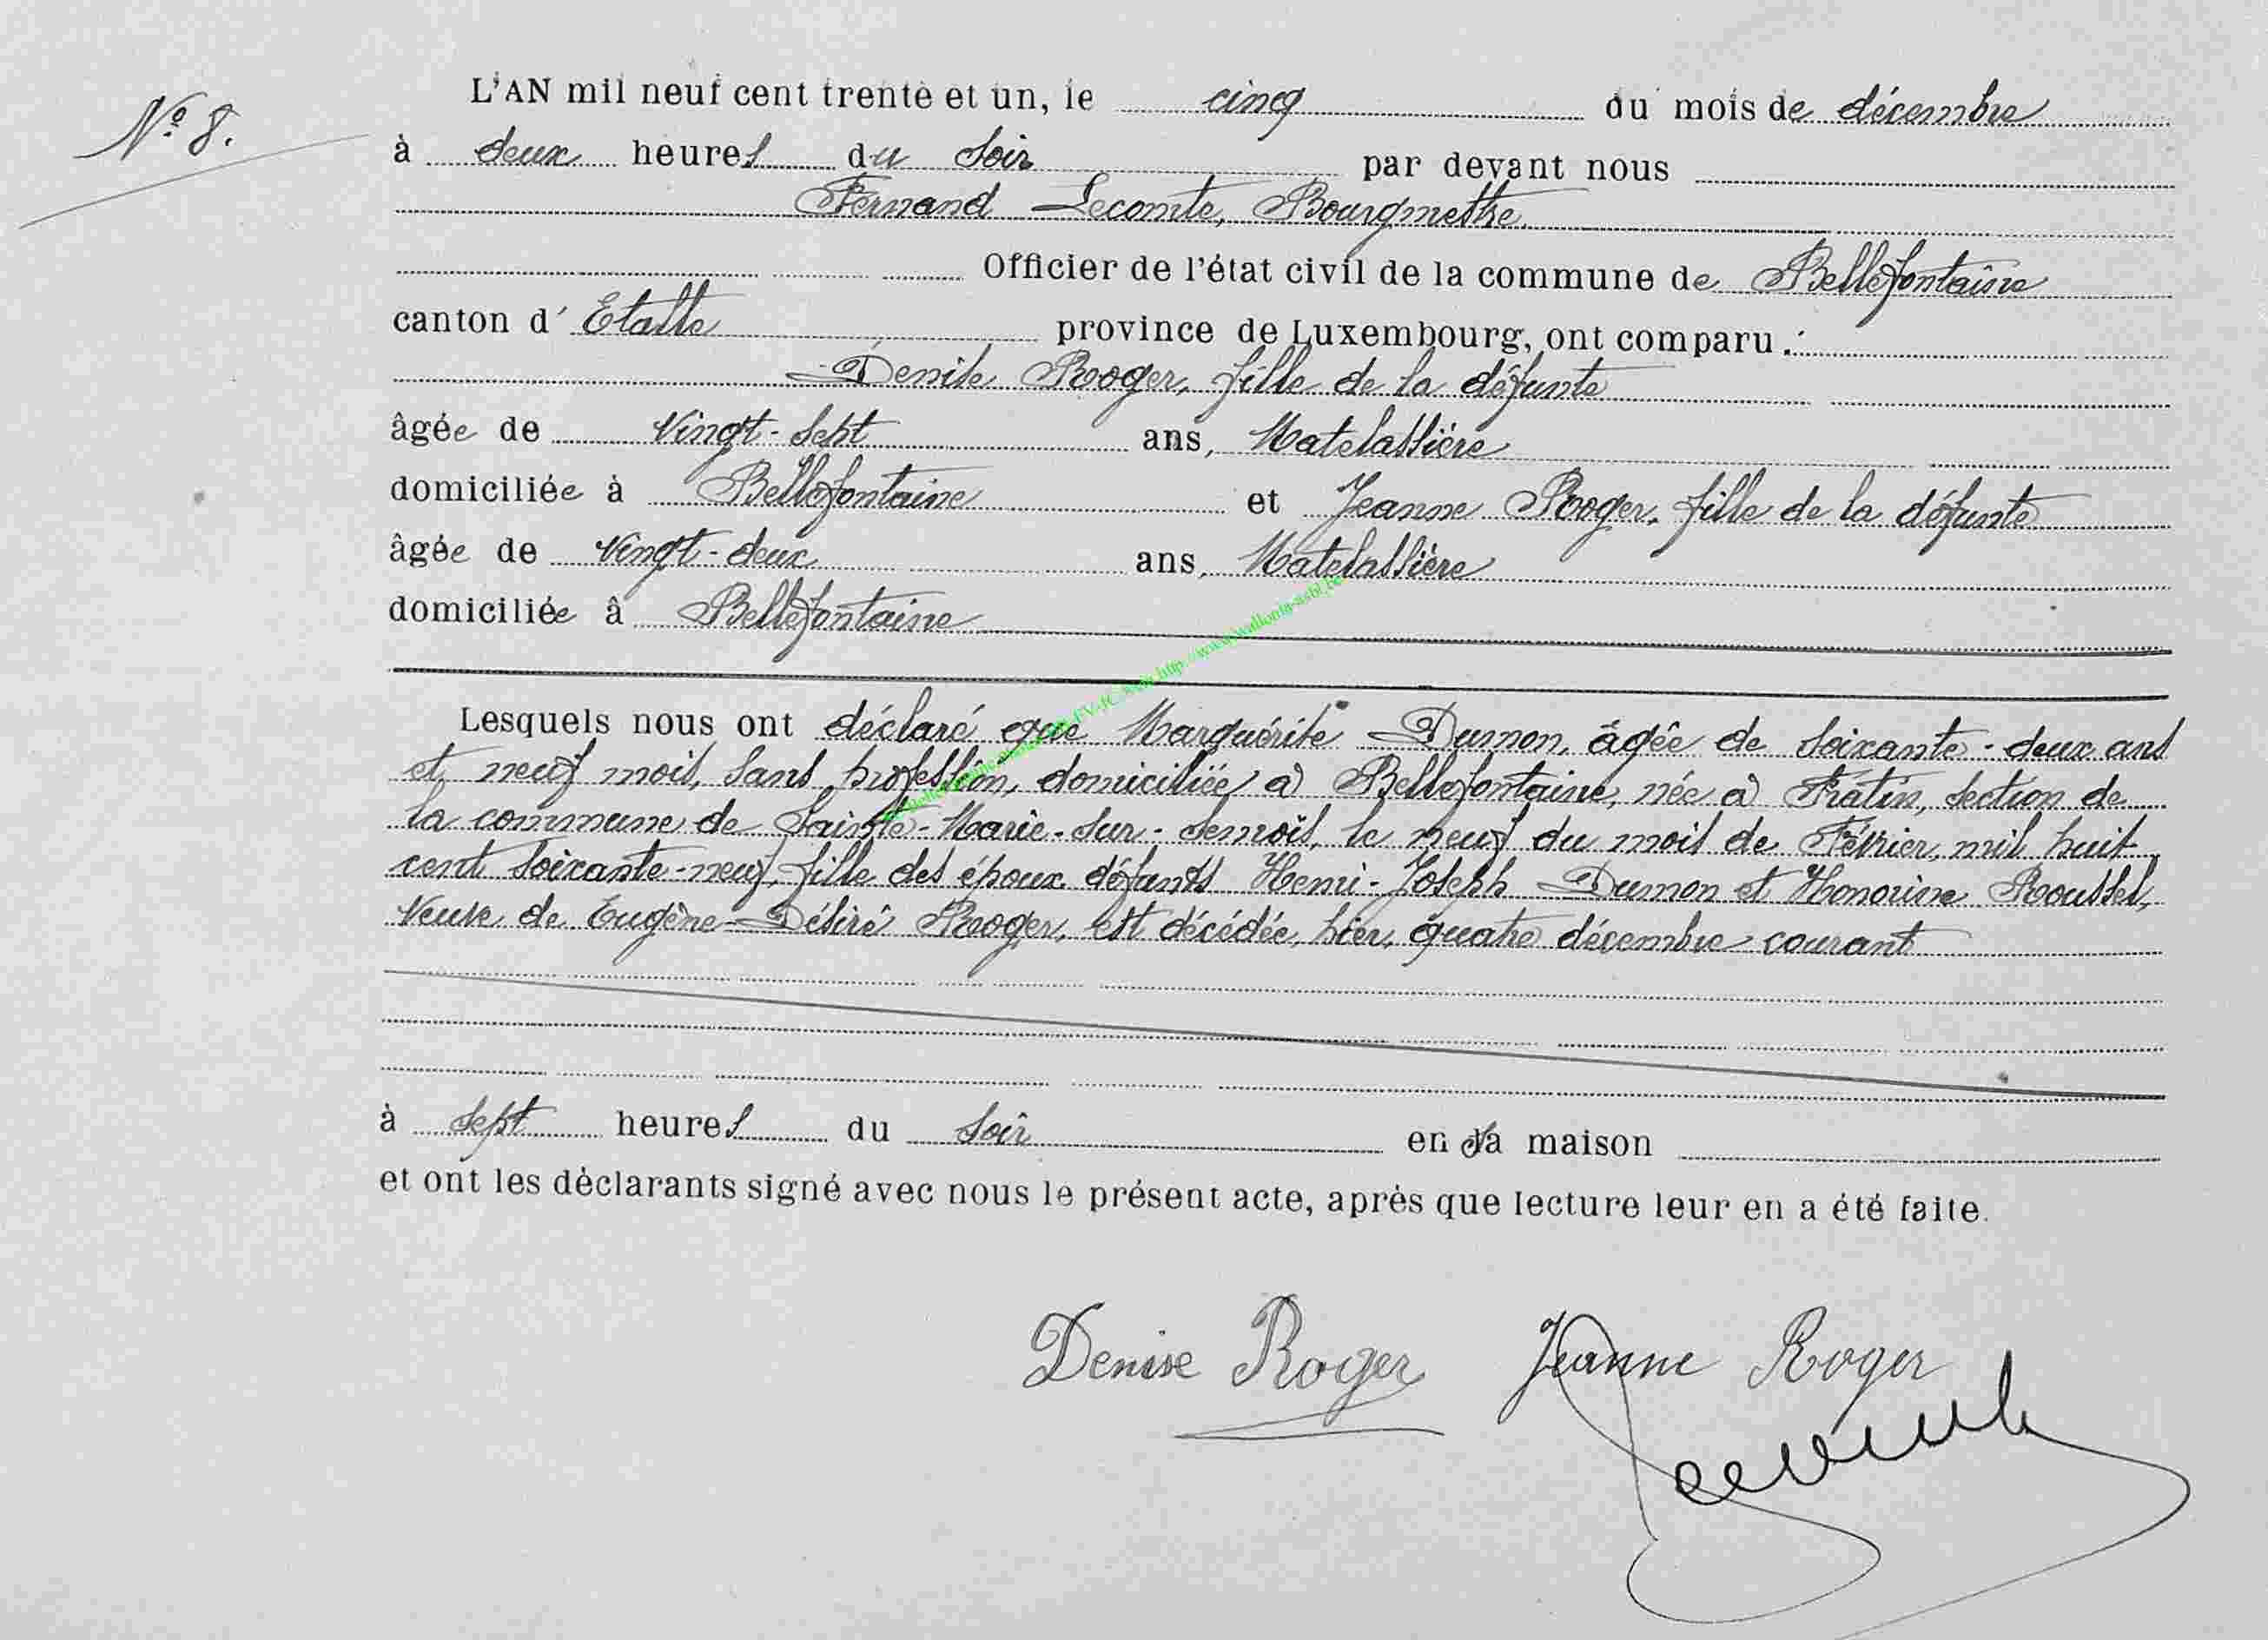 N° 8.
L'AN mil neuf cent trente et un, le cinq du mois de décembre
à deux heures du soir par devant nous
Fernand Lecomte, Bourgmestre
Officier de l'état civil de la commune de Bellefontaine
canton d'Etalle province de Luxembourg, ont comparu :
Denise Roger, fille de la défunte
âgée de vingt-sept ans, Matelassière
domiciliée à Bellefontaine et Jeanne Roger, fille de la défunte
âgée de vingt-deux ans, Matelassière
domiciliée à Bellefontaine
Lesquels nous ont déclaré que Marguérite Dumon, âgée de soixante-deux ans
et neuf mois, sans profession, domiciliée à Bellefontaine, née à Fratin, section de
la commune de Sainte-Marie-sur-Semois, le neuf du mois de Février, mil huit
cent soixante-neuf, fille des époux défunts Henri-Joseph Dumon et Honorine Roussel,
veuve de Eugène-Désiré Roger, est décédée, hier, quatre décembre courant
à sept heures du soir en sa maison
et ont les déclarants signé avec nous le présent acte, après que lecture leur en a été faite.
Denise Roger Jeanne Roger